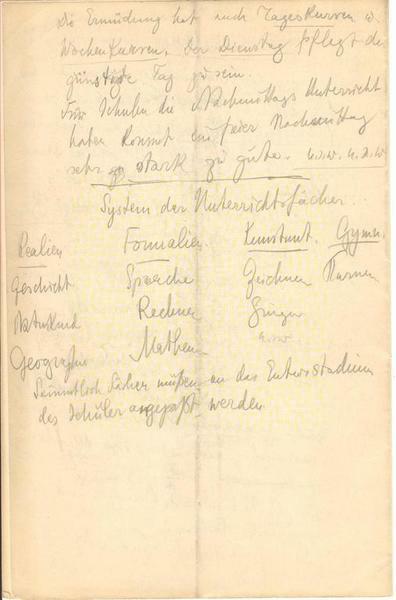 Die Ermüdung hat nach Tageskurven u.
Wochenkurven. Der Dienstag pflegt der
günstigste Tag zu sein.
Für Schulen die Nachmittags Unterricht
haben kommt ein freier Nachmittag
sehr stark zu gute. u.s.w. u.s.w
System der Unterrichtsfächer.
Realien Formalien. Gymn.
Geschicht Sprache Zeichnen Turnen
Naturkund Rechnen Singen
Geographie Mathem u.s.w
Sämmtlich Fächer müßen an das Entw.stadium
des Schüler angepaßt werden